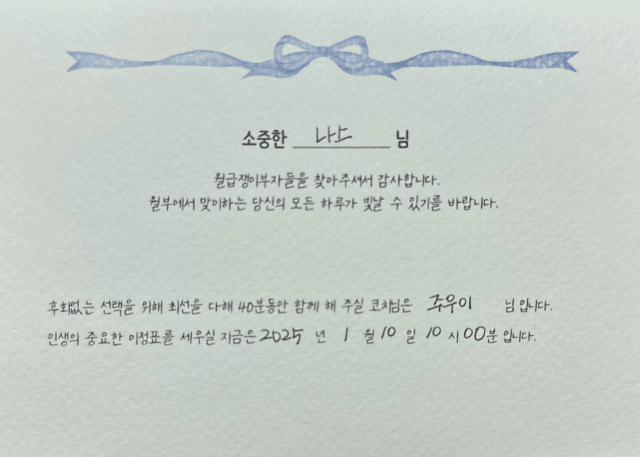 소중한 나느 님
월급쟁이부자들을 찾아주셔서 감사합니다.
월부에서 맞이하는 당신의 모든 하루가 빛날 수 있기를 바랍니다.
후회없는 선택을 위해 최선을 다해 40분동안 함께 해 주실 코치님은 주우이 님 입니다.
인생의 중요한 이정표를 세우실 지금은 2025 년 1 월 10 일 10 시 00분 입니다.